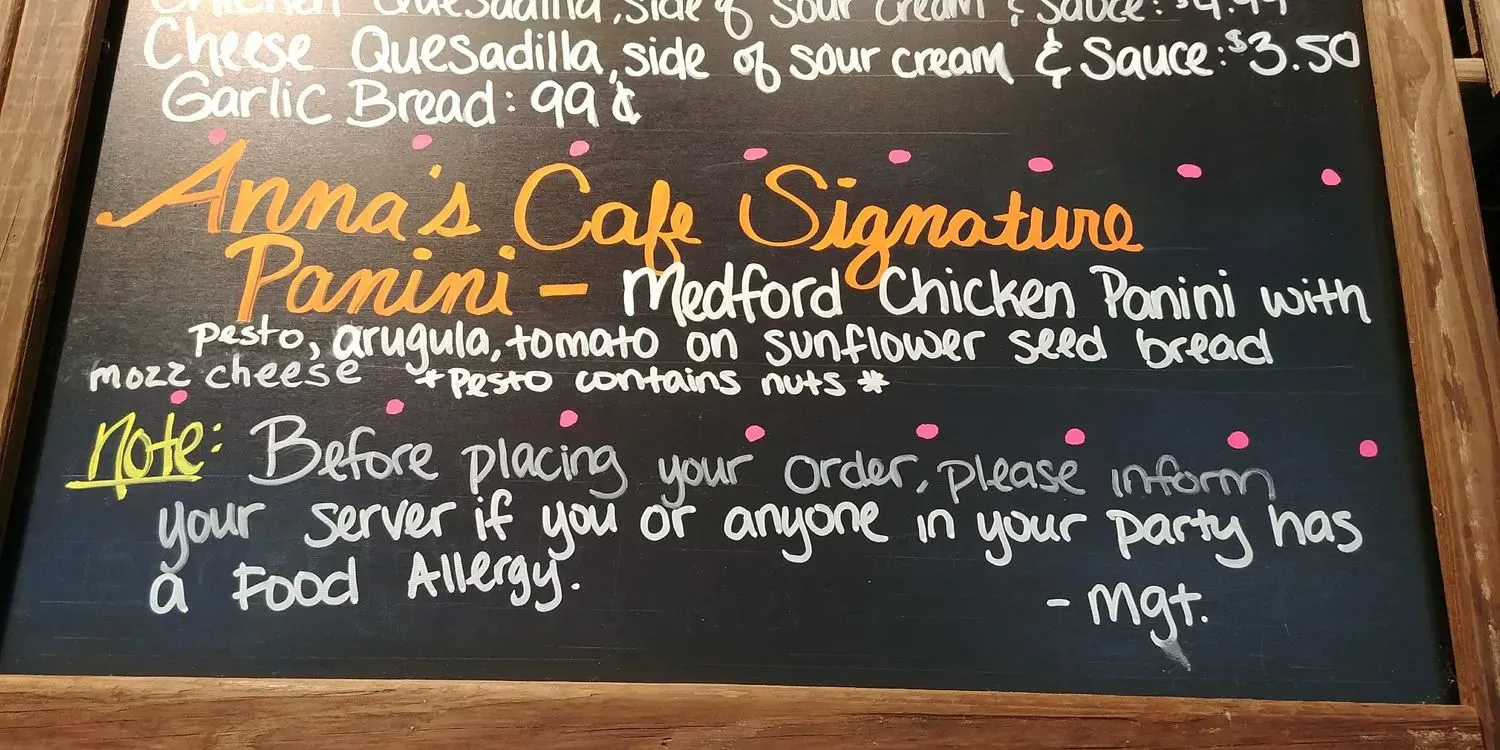 Chicken Quesadilla, side of sour cream & Sauce: $4.99
Cheese Quesadilla, side of sour cream & Sauce: $3.50
Garlic Bread: 99¢
Anna's Cafe Signature
Panini - Medford Chicken Panini with
pesto, arugula, tomato on sunflower seed bread
mozz cheese *Pesto contains nuts*
Note: Before placing your order, please inform
your server if you or anyone in your party has
a Food Allergy.
- Mgt.